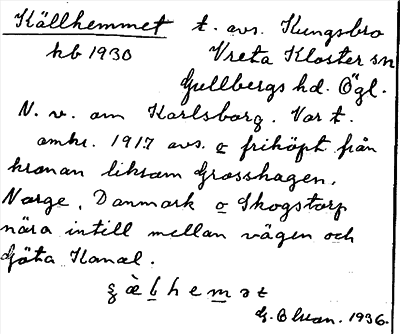 Källhemmet t. avs. Kungsbro
hb 1930 Vreta Kloster sn
Gullbergs hd. Ögl.
N. v. om Karlsborg. Var t.
omkr. 1917 avs. o friköpt från
kronan liksom Grosshagen,
Norge, Danmark o Skogstorp
nära intill mellan vägen och
Göta Kanal.
G. Olson. 1936.